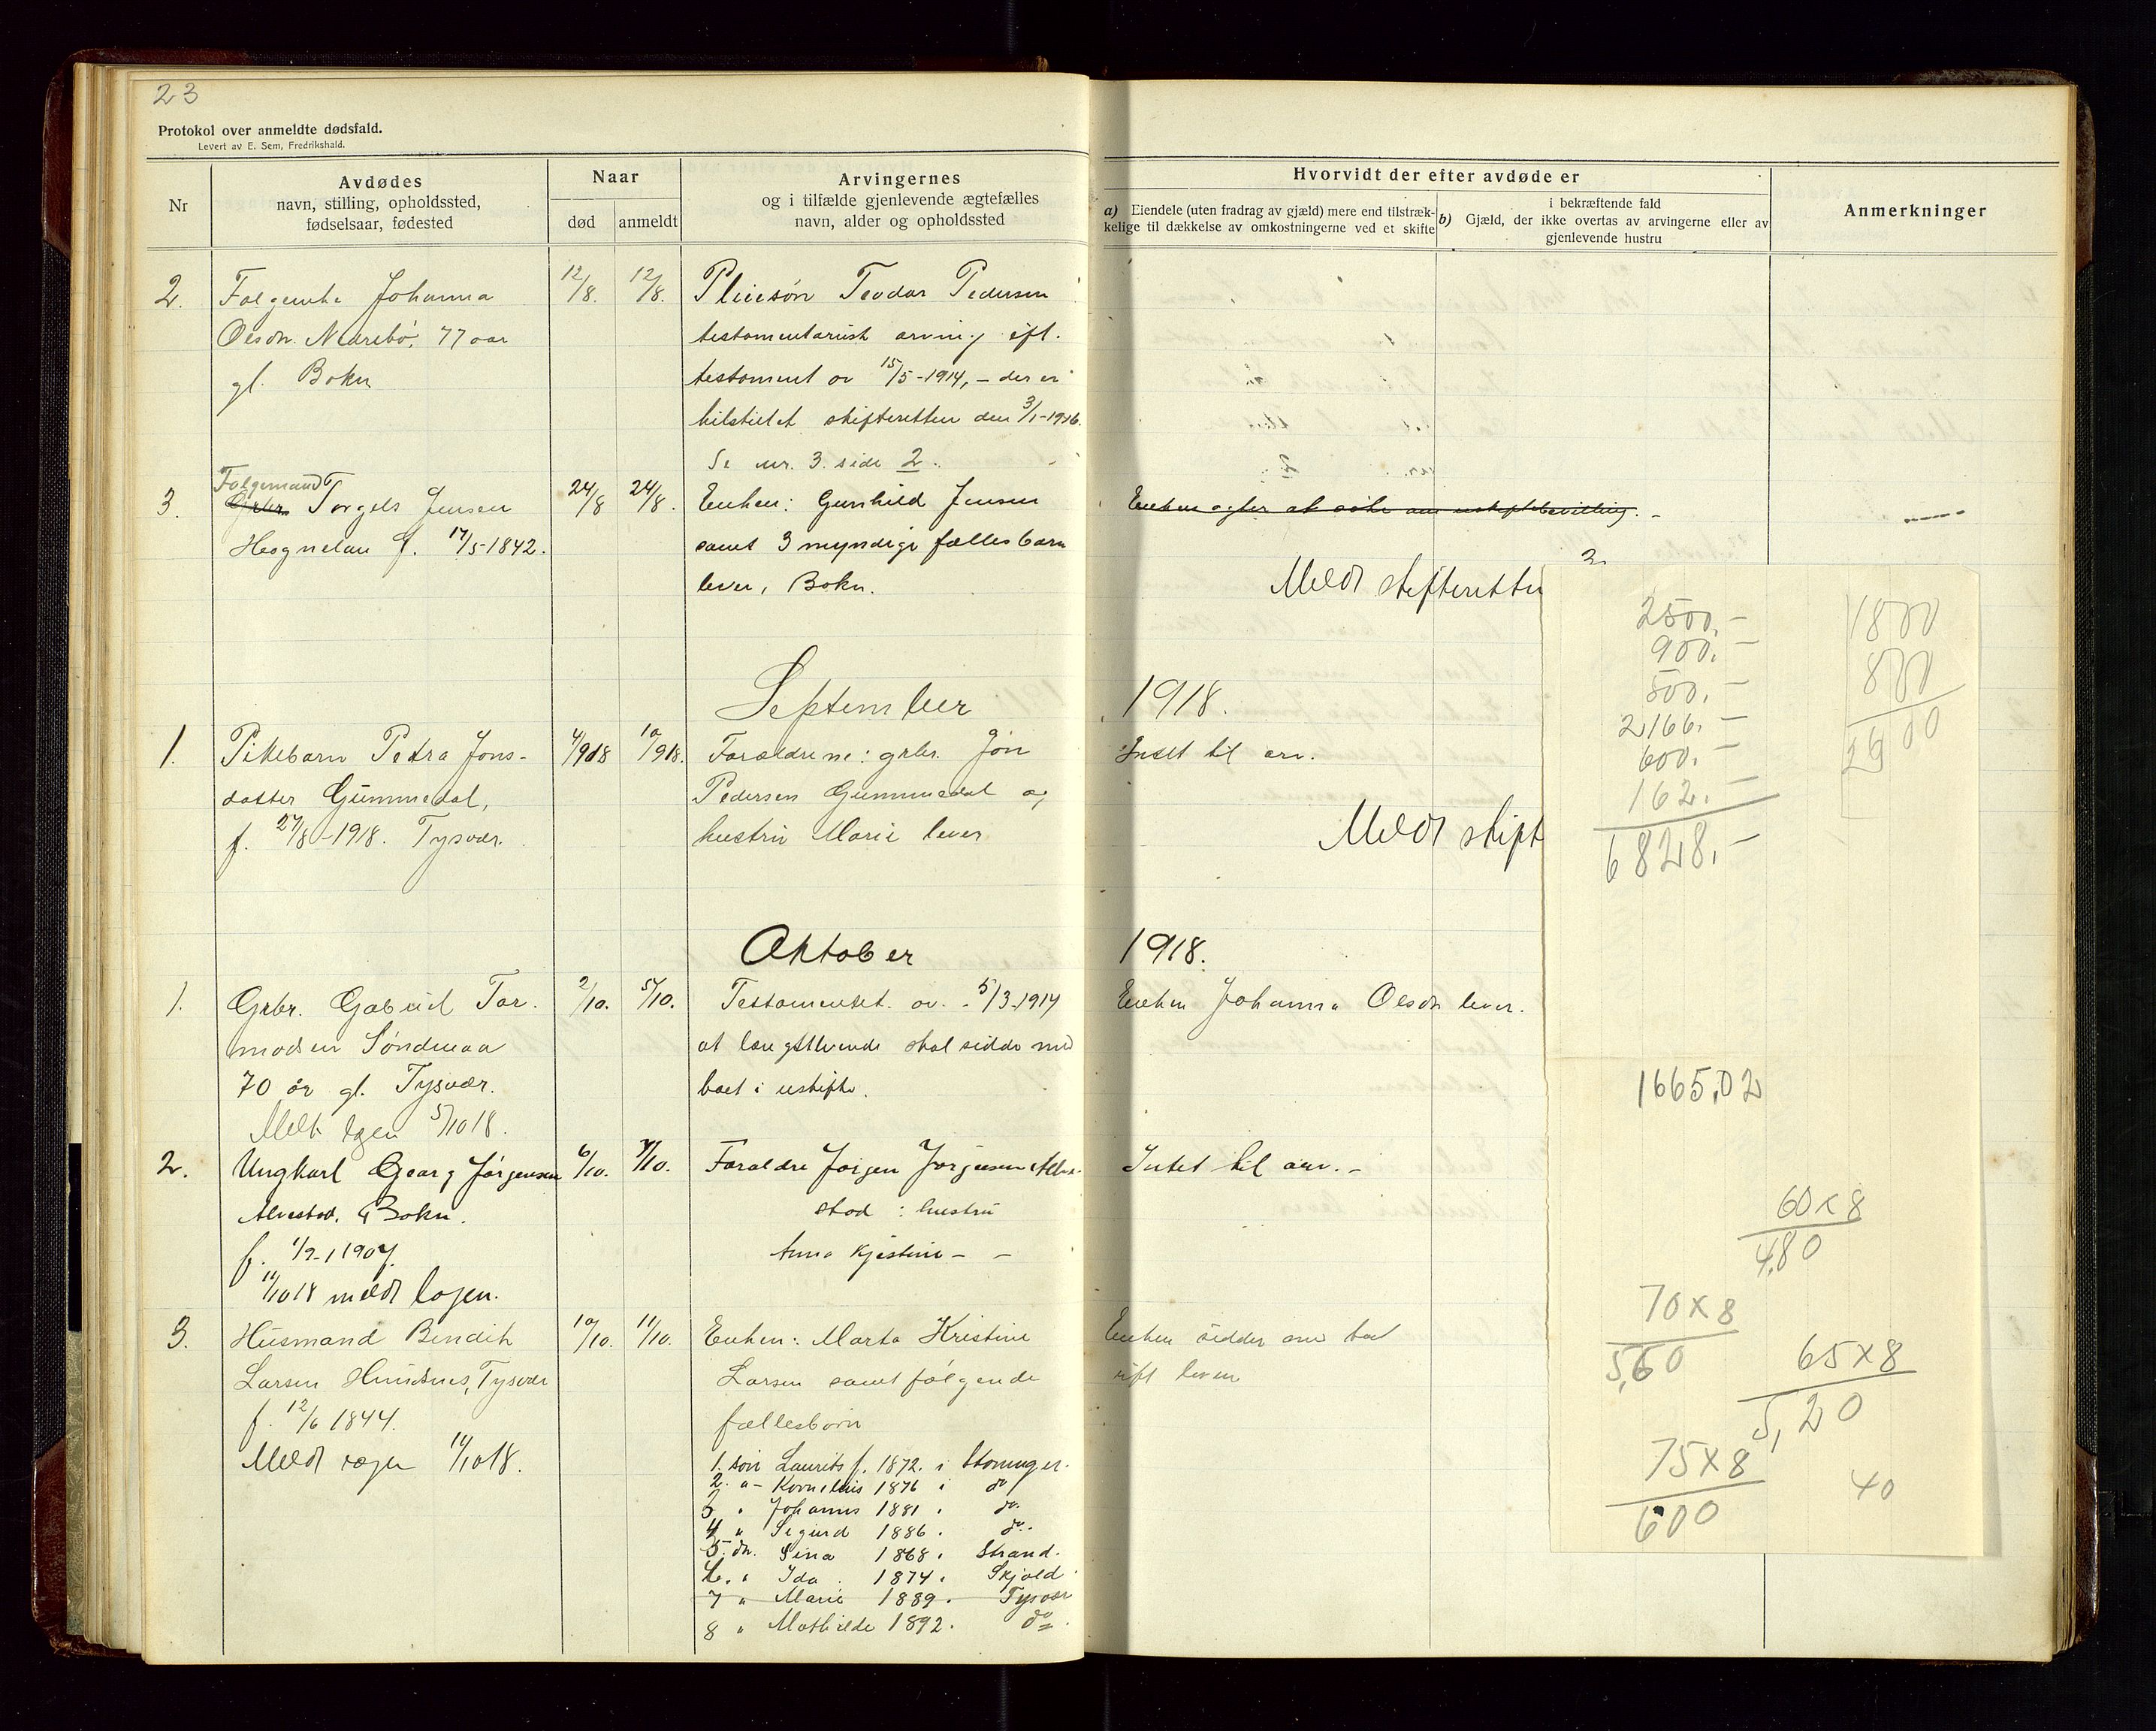 23
Protokol over anmeldte dødsfald.
Levert av E. Sem, Fredrikshald.
Nr
Avdødes
navn, stilling, opholdssted,
fødselsaar, fødested
Naar
død
anmeldt
Arvingernes
og i tilfælde gjenlevende ægtefælles
navn, alder og opholdssted
Hvorvidt der efter avdøde er
a) Eiendele (uten fradrag av gjæld) mere end tilstræk-
kelige til dækkelse av omkostningerne ved et skifte
i bekræftende fald
b) Gjæld, der ikke overtas av arvingerne eller av
gjenlevende hustru
Anmerkninger
2. Johanna
Olsdn. 77 aar
gl. Bokn
12/8. 12/8.
Pleiesøn Teodor Pedersen
testamentarisk arving efl.
testament av 15/5-1914, - der er
tilstillet skifteretten den 3/1-1916.
Se nr. 3. side 2.
3. Følgemand
Grbr. Torgels Jensen
Hognelan f. 17/5-1842.
24/8 24/8.
Enken: Gunhild Jensen
samt 3 myndige fællesbarn
lever, Bokn.
Enken agter at søke om uskiftebevilling. -
Meldt skifteretten
September 1918.
1. Pikebarn Petra Jons-
datter Gummedal,
f. 27/8-1918. Tysvær.
4/918 10/918.
Forældrene: grbr. Jon
Pedersen Gummedal og
hustru Marie lever
Intet til arv.
Meldt skift
Oktober 1918.
1. Grbr. Gabriel Tor.
modsen Søndenaa
70 år gl. Tysvær.
Meldt 5/10 18.
2/10. 5/10.
Testamentet. av. 5/3-1917
at længstlevende skal sidde med
boet i uskifte.
Enken Johanna Olsdn lever.
2. Ungkarl Georg Jørgensen
Alvestad, Bokn.
f. 1/2-1907.
11/1018 meldt
6/10. 7/10.
Forældre Jørgen Jørgensen Alve-
stad : hustru
Anna Kjestine - -
Intet til arv. -
3. Husmand Bendik
Larsen Hundsnes, Tysvær
f. 12/6 1844.
Meldt 11/1018.
10/10. 11/10.
Enken: Marta Kristine
Larsen samt følgende
fællesbørn
1. søn Laurits f. 1872. i Stavanger.
2. " - Kornelius 1876 i do
3 " Johannes 1881 . do.
4 " Sigurd 1886 . do.
5. dn. Sina 1868 . Strand.
6. " Ida 1874 . Skjold
7 " Marie 1889 . Tysvær
8 " Mathilde 1892. do
Enken sidder
2500,-
900,-
500,-
2166,-
600,-
162,-
6828,-
1800
800
2600
1665,02
60 x 8
4,80
70 x 8
5,60
65 x 8
5,20
75 x 8
600
40